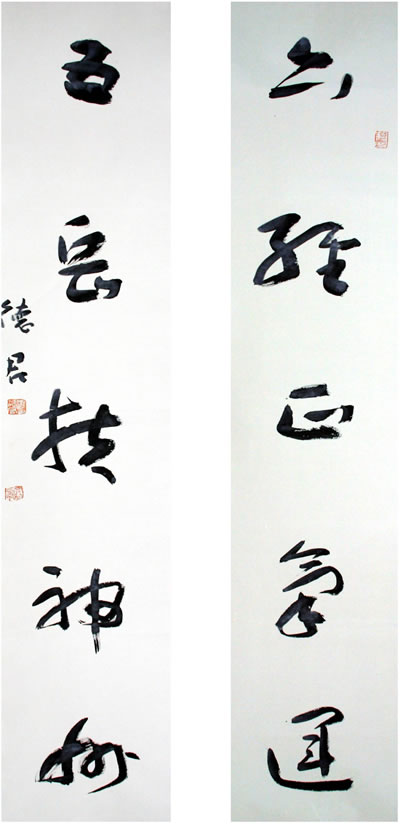 六經正氣運
五岳扶神州
德君